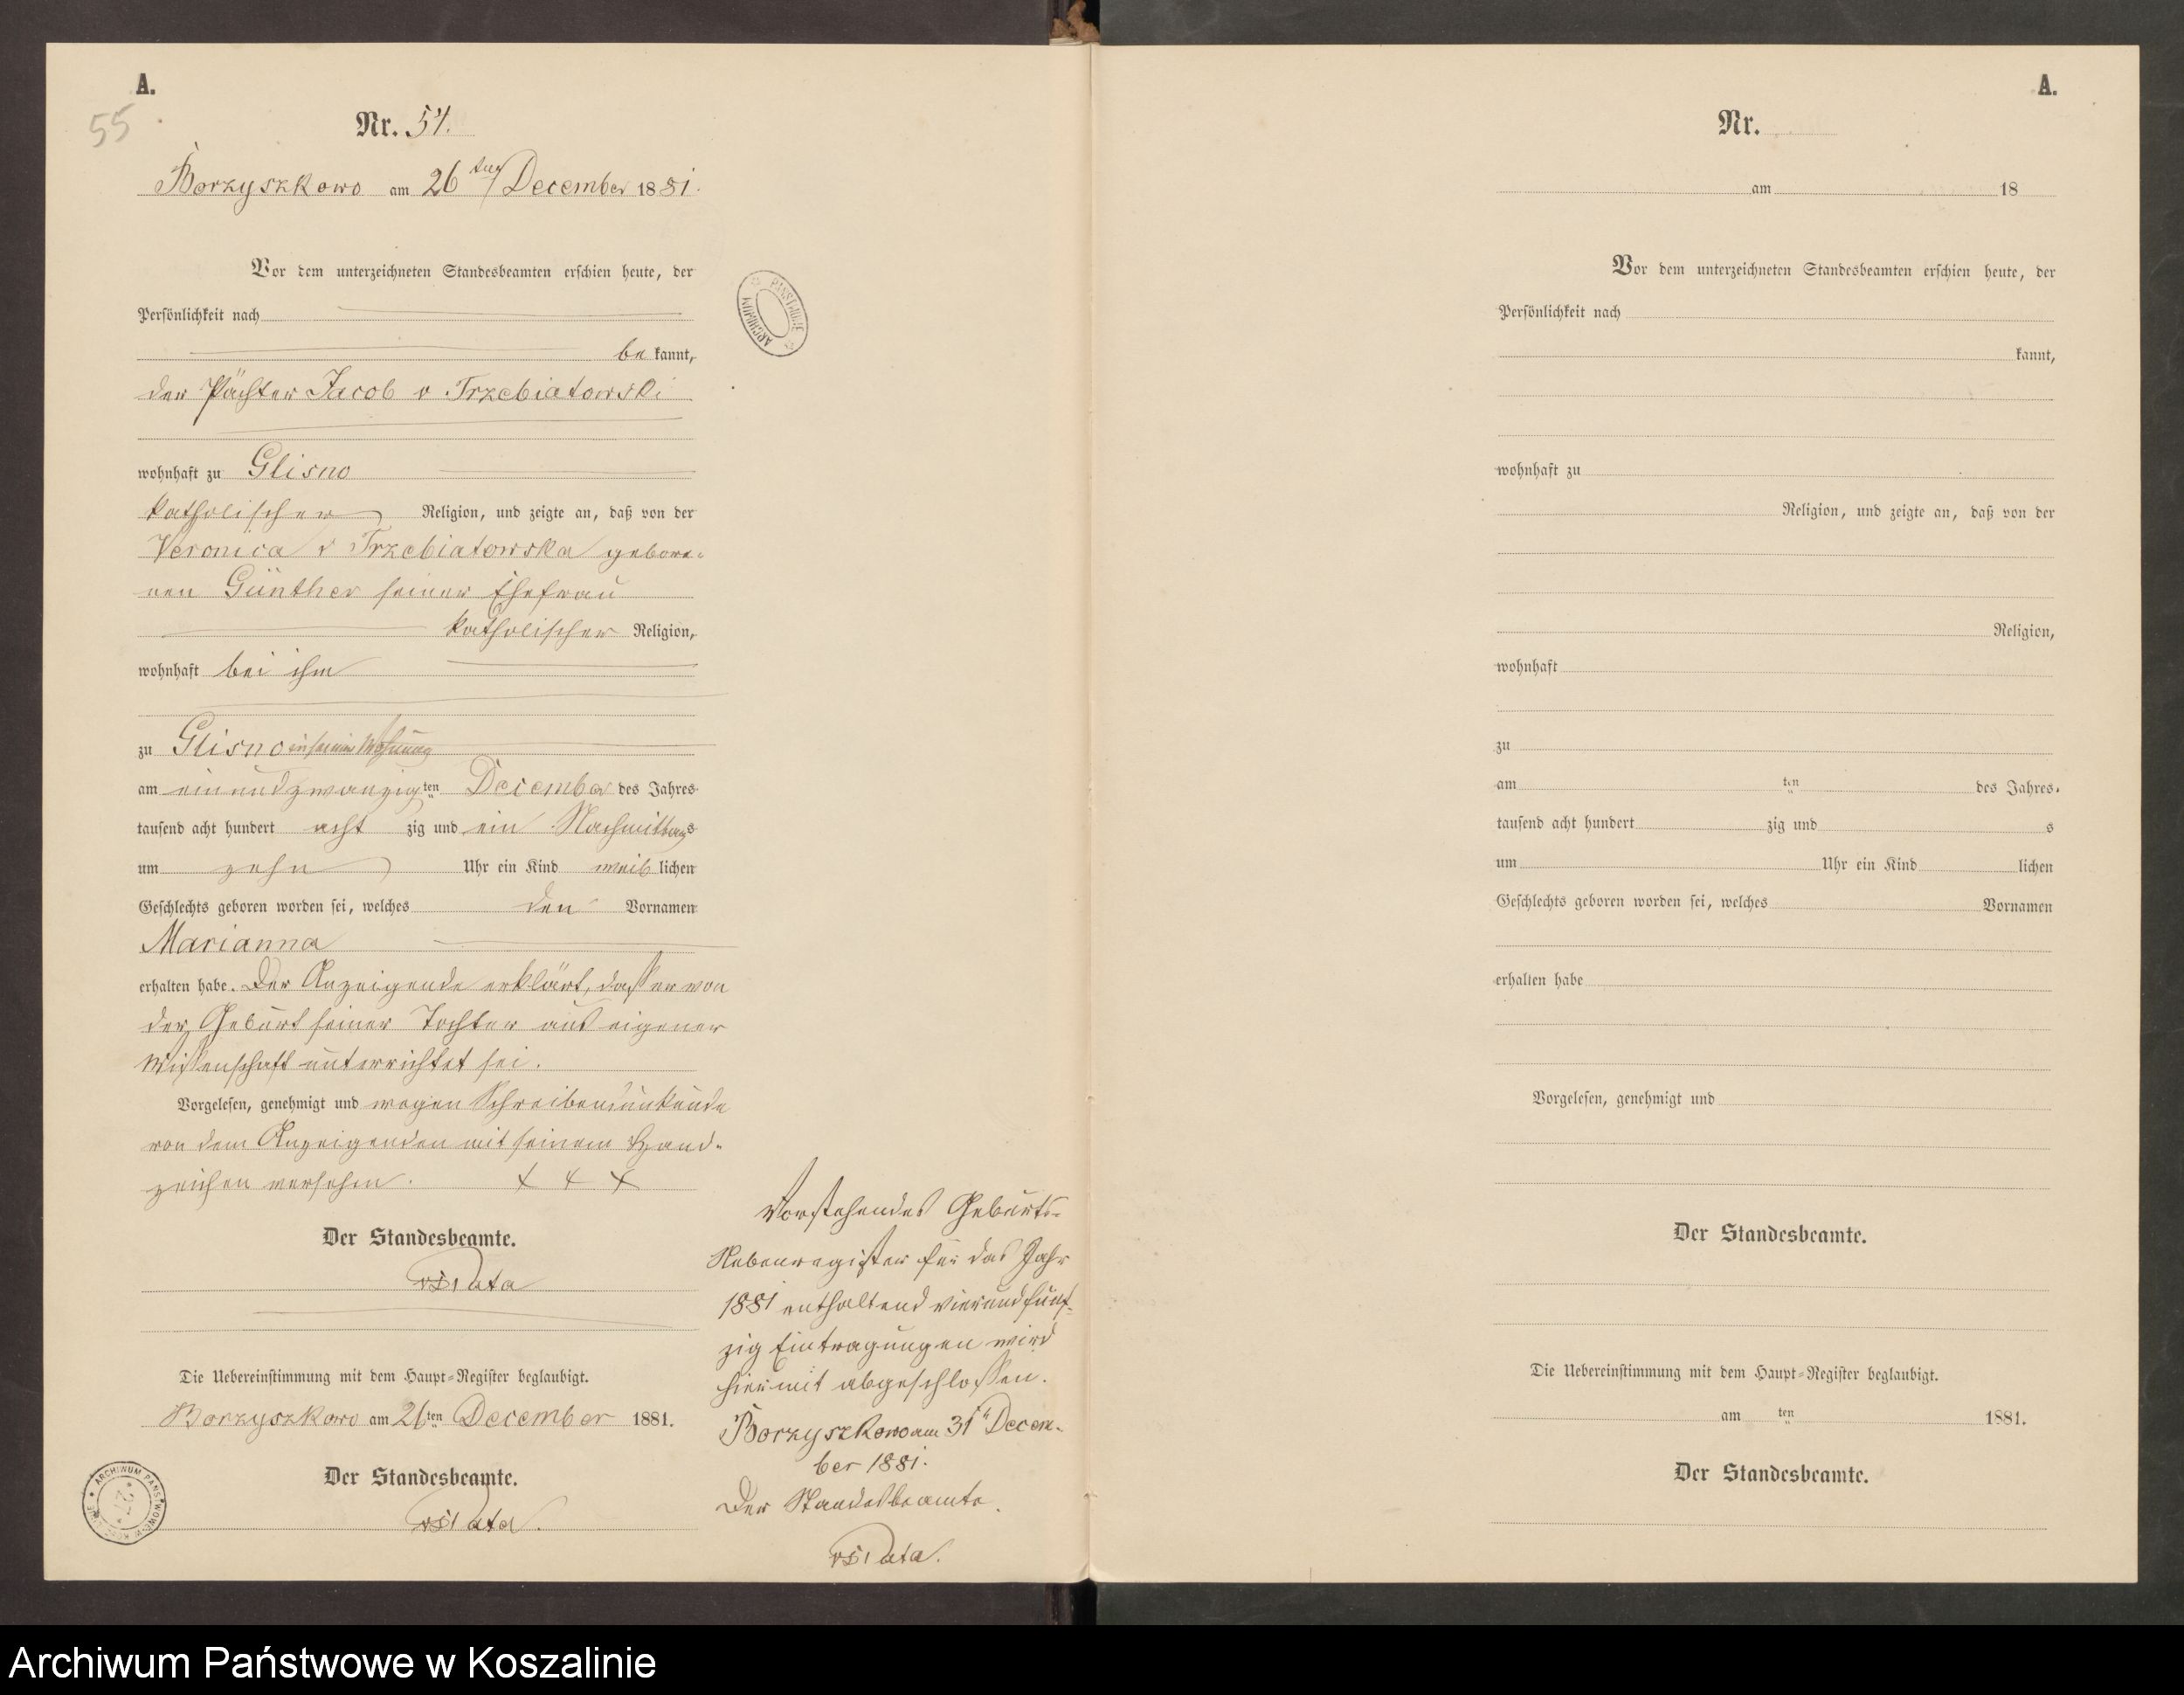 A.
55
Nr. 54.
Borzyszkowo am 26ten December 1881.
Vor dem unterzeichneten Standesbeamten erschien heute, der
Persönlichkeit nach
be kannt,
der Pächter Jacob v Trzebiatowski
wohnhaft zu Glisno
katholischer Religion, und zeigte an, daß von der
Veronica v Trzebiatowska gebore-
nen Günther seiner Ehefrau
katholischer Religion,
wohnhaft bei ihm
zu Glisno in seiner Wohnung
am einundzwanzig ten December des Jahres
tausend acht hundert acht zig und ein Nachmittags
um zehn Uhr ein Kind weib lichen
Geschlechts geboren worden sei, welches den Vornamen
Marianna
erhalten habe. Der Anzeigende erklärt, dass er von
der Geburt seiner Tochter aus eigener
Wissenschaft unterrichtet sei.
Vorgelesen, genehmigt und wegen Schreibensunkunde
von dem Anzeigenden mit seinem Hand-
zeichen versehen. + + +
Der Standesbeamte.
Die Uebereinstimmung mit dem Haupt-Register beglaubigt.
Borzyszkowo am 26ten December 1881.
Der Standesbeamte.
ARCHIWUM PAŃSTWOWE
Vorstehendes Geburts-
Nebenregister für das Jahr
1881 enthaltend vierundfünf-
zig Eintragungen wird
hiermit abgeschlossen.
Borzyszkowo am 31t Decem-
ber 1881.
Der Standesbeamte.
ARCHIWUM PAŃSTWOWE W
A.
Nr.
am 18
Vor dem unterzeichneten Standesbeamten erschien heute, der
Persönlichkeit nach
kannt,
wohnhaft zu
Religion, und zeigte an, daß von der
Religion,
wohnhaft
zu
am ten des Jahres
tausend acht hundert zig und s
um Uhr ein Kind lichen
Geschlechts geboren worden sei, welches Vornamen
erhalten habe
Vorgelesen, genehmigt und
Der Standesbeamte.
Die Uebereinstimmung mit dem Haupt-Register beglaubigt.
am ten 1881.
Der Standesbeamte.
Archiwum Państwowe w Koszalinie